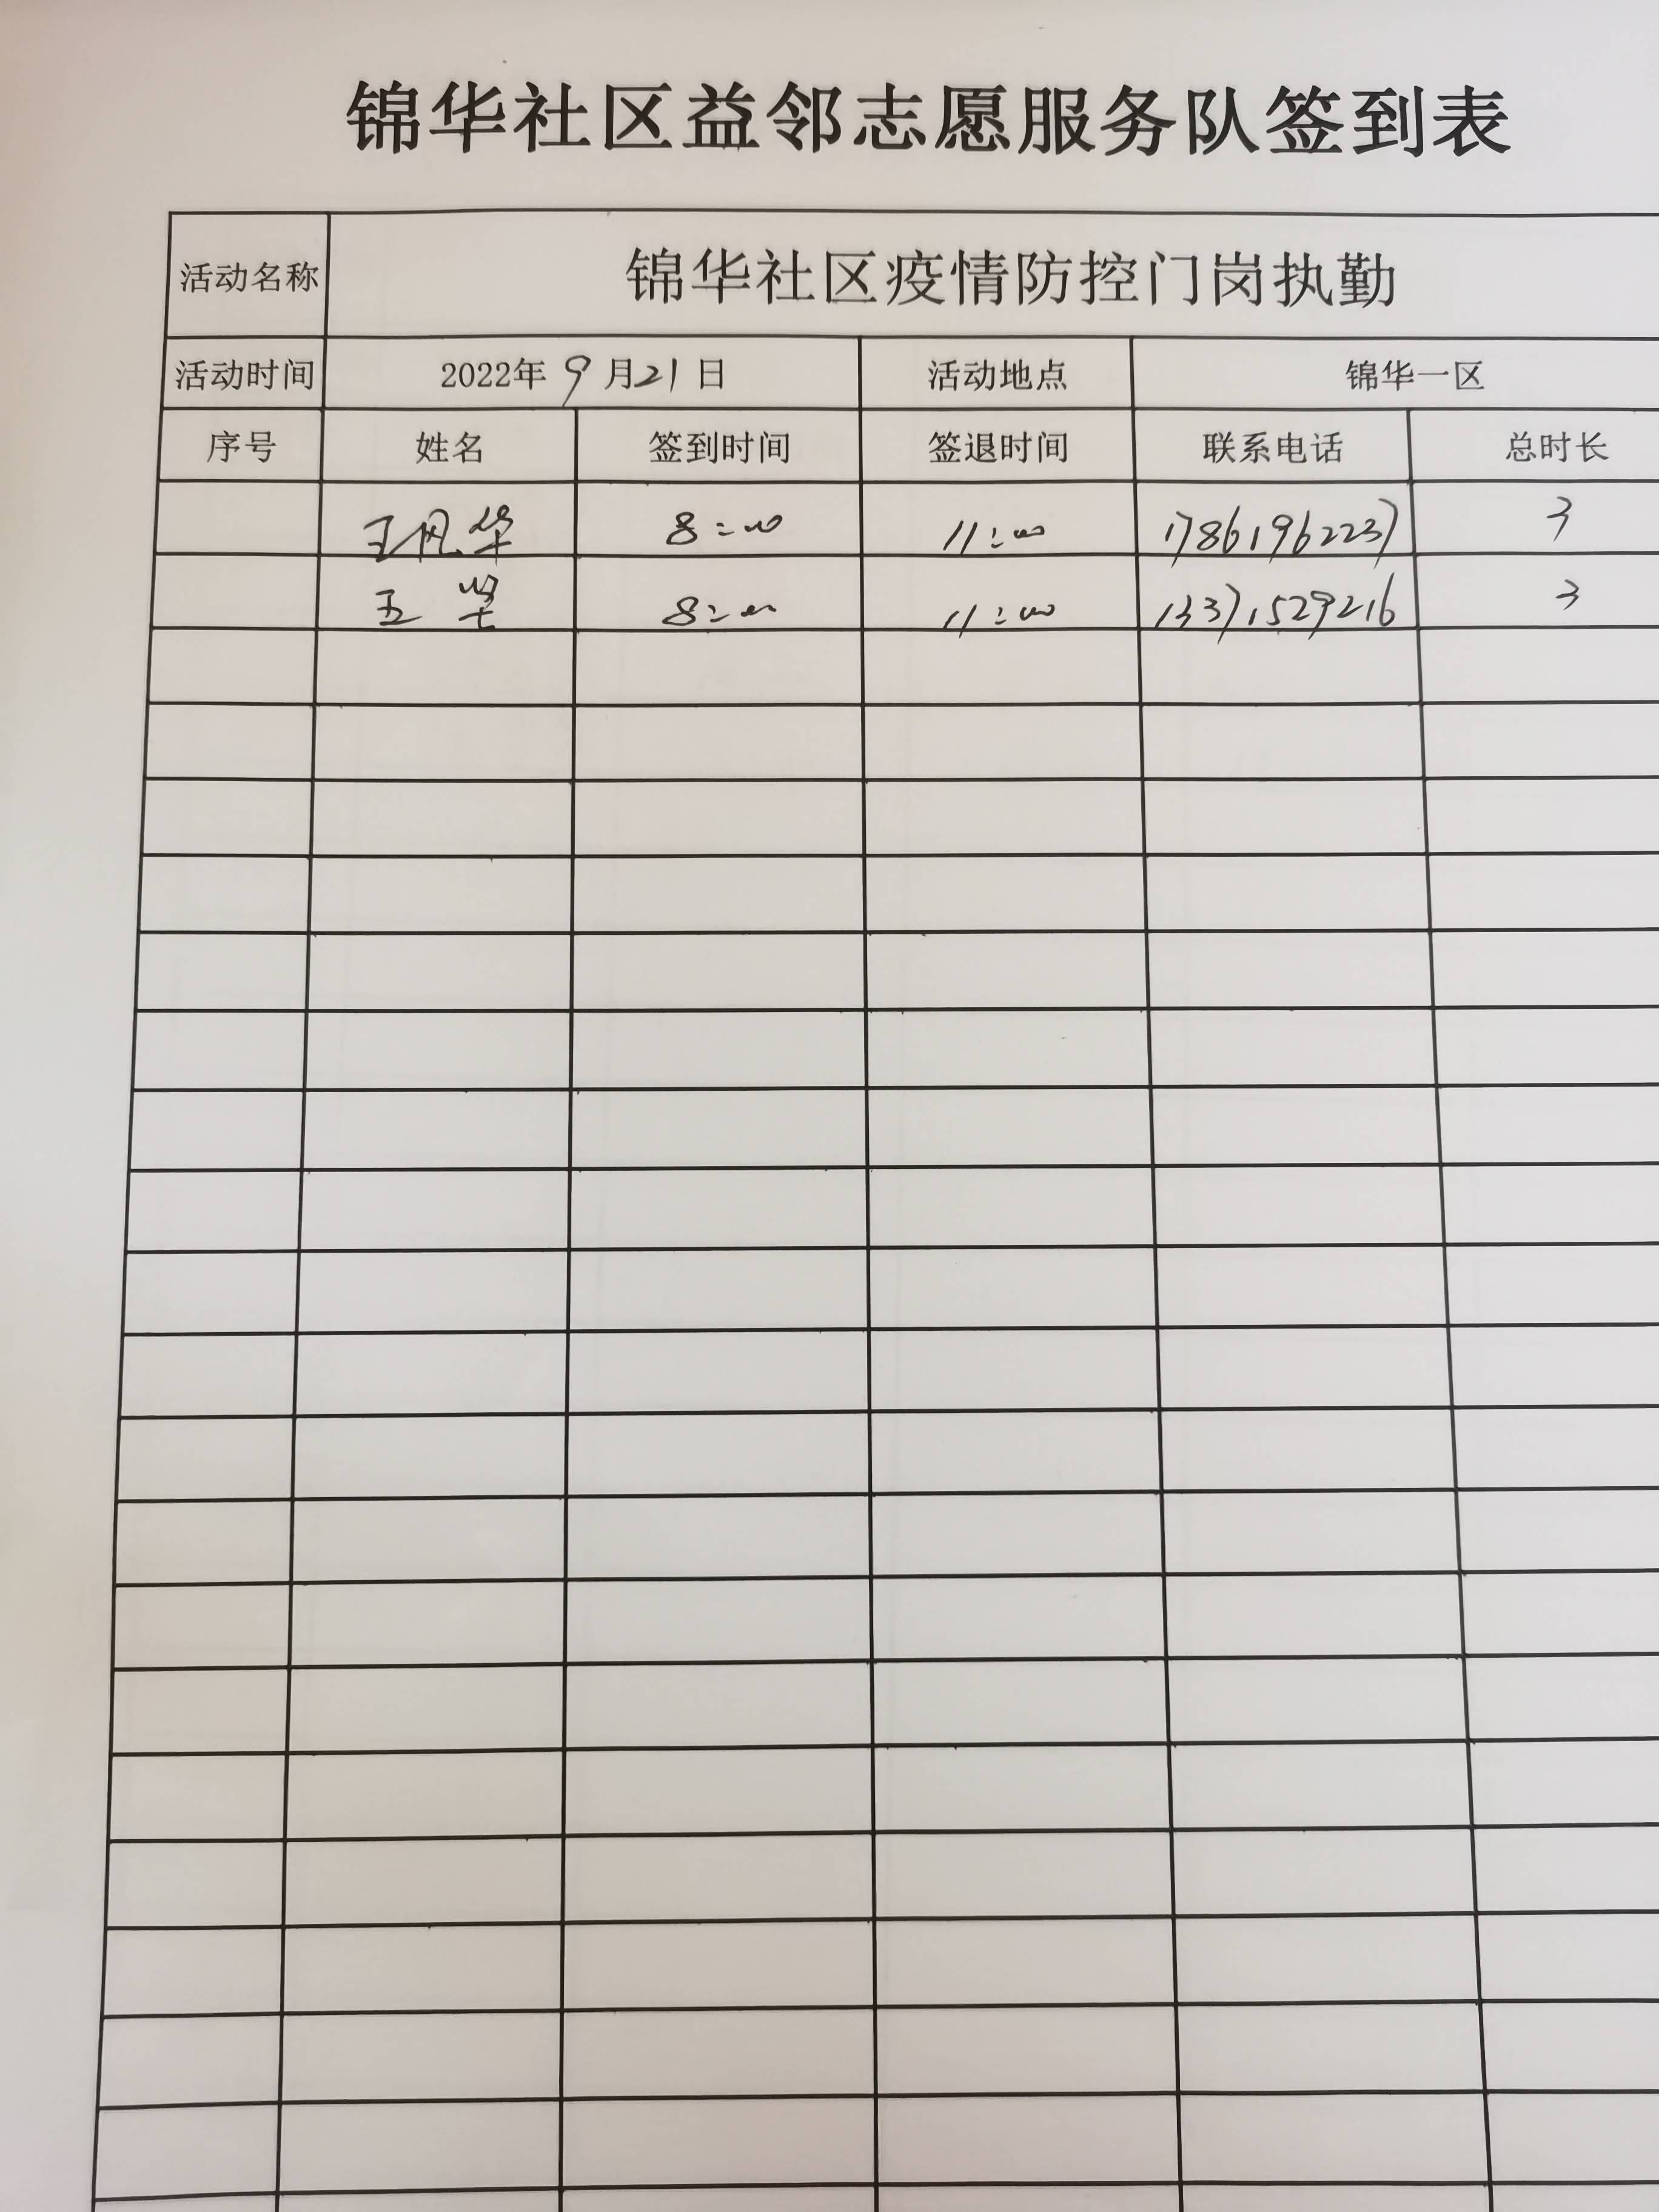 锦华社区益邻志愿服务队签到表
活动名称 锦华社区疫情防控门岗执勤
活动时间 2022年9月21日 活动地点 锦华一区
序号 姓名 签到时间 签退时间 联系电话 总时长
王风华 8:00 11:00 17861962237 3
王 8:00 11:00 13371529216 3